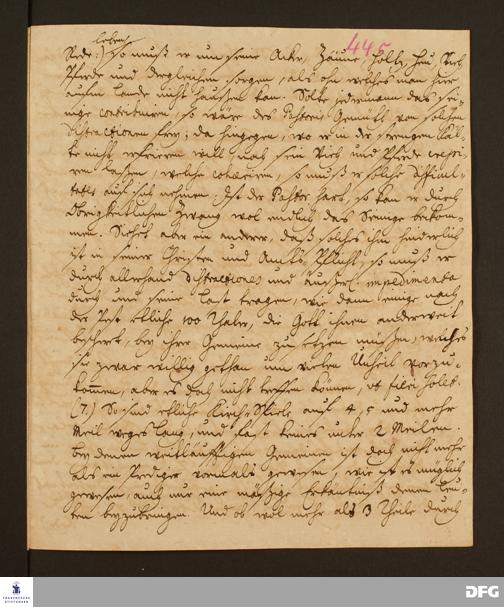 leben
Rede:) so muß er um seine Äcker, Zäune, Holtz, Heu, Vieh
445
Pferde und dergleichen sorgen, als ohn welches man hier
aufm Lande nicht hausen kan. Solte jedermann das sei-
nige contribuiren, so wäre des Pastoris Gemüth von solchen
Distractionen frey; da hingegen, wo er in der strengen Käl-
te nicht erfrieren will, noch sein Vieh und Pferde crepi-
ren laßen, so muß er solche difficul-
tates auf sich nehmen. Ist der Pastor hart, so kan er durch
Obrigkeitlichen Zwang wol endlich das Seinige bekom-
men. Siehet aber ein anderer, daß solches ihm hinderlich
ist in seiner Christen und Amts Pflicht, so muß er
durch allerhand Distractiones und impedimenta
durch und seine Last tragen, wie dann einige nach
der Pest etliche 100 Thaler, die Gott ihnen anderweit
bescheret, bey ihrer Gemeine zusetzen müßen, welches
sie zwar willig gethan um vielen Unheil vorzu-
kommen, aber es doch nicht treffen können,
(7.) So sind etliche Kirch Spiele auf 4, 5 und mehr
Meil weges lang, und fast keines unter 2 Meilen.
bey denen weitläufftigen Gemeinen ist doch nicht mehr
als ein Prediger vormals gewesen, wie ist es möglich
gewesen, auch nur eine mäßige Erkäntniß denen Leu-
ten beyzubringen. Und ob wol mehr als 3 Theile durch
FRANCKESCHE
STIFTUNGEN
DFG